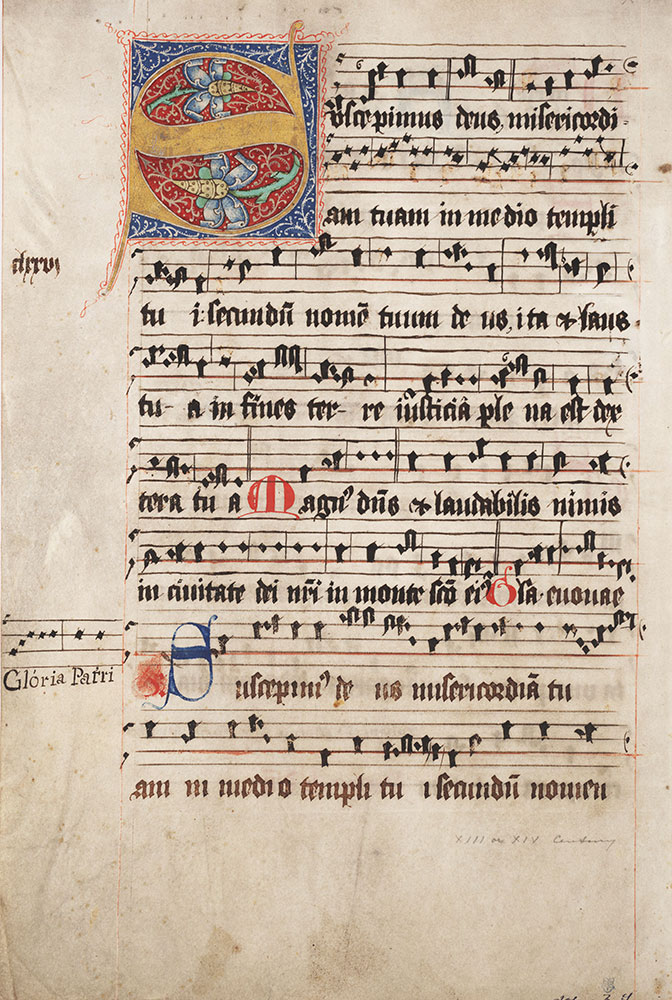 Suscepimus deus, misericordi
am tuam in medio templi
clxxvi
tu i. secundū nomē tuum de us, ita & laus
tu a in fines ter re iusticiā ple na est dex
tera tu a Magn' dn̄s & laudabilis nimis
in ciuitate dei nr̄i in monte scō ei' Gl̄a. euouae
Glória Patri
Suscepim' de us misericordiā tu
am in medio templi tu i secundū nomen
XIII or XIV Century